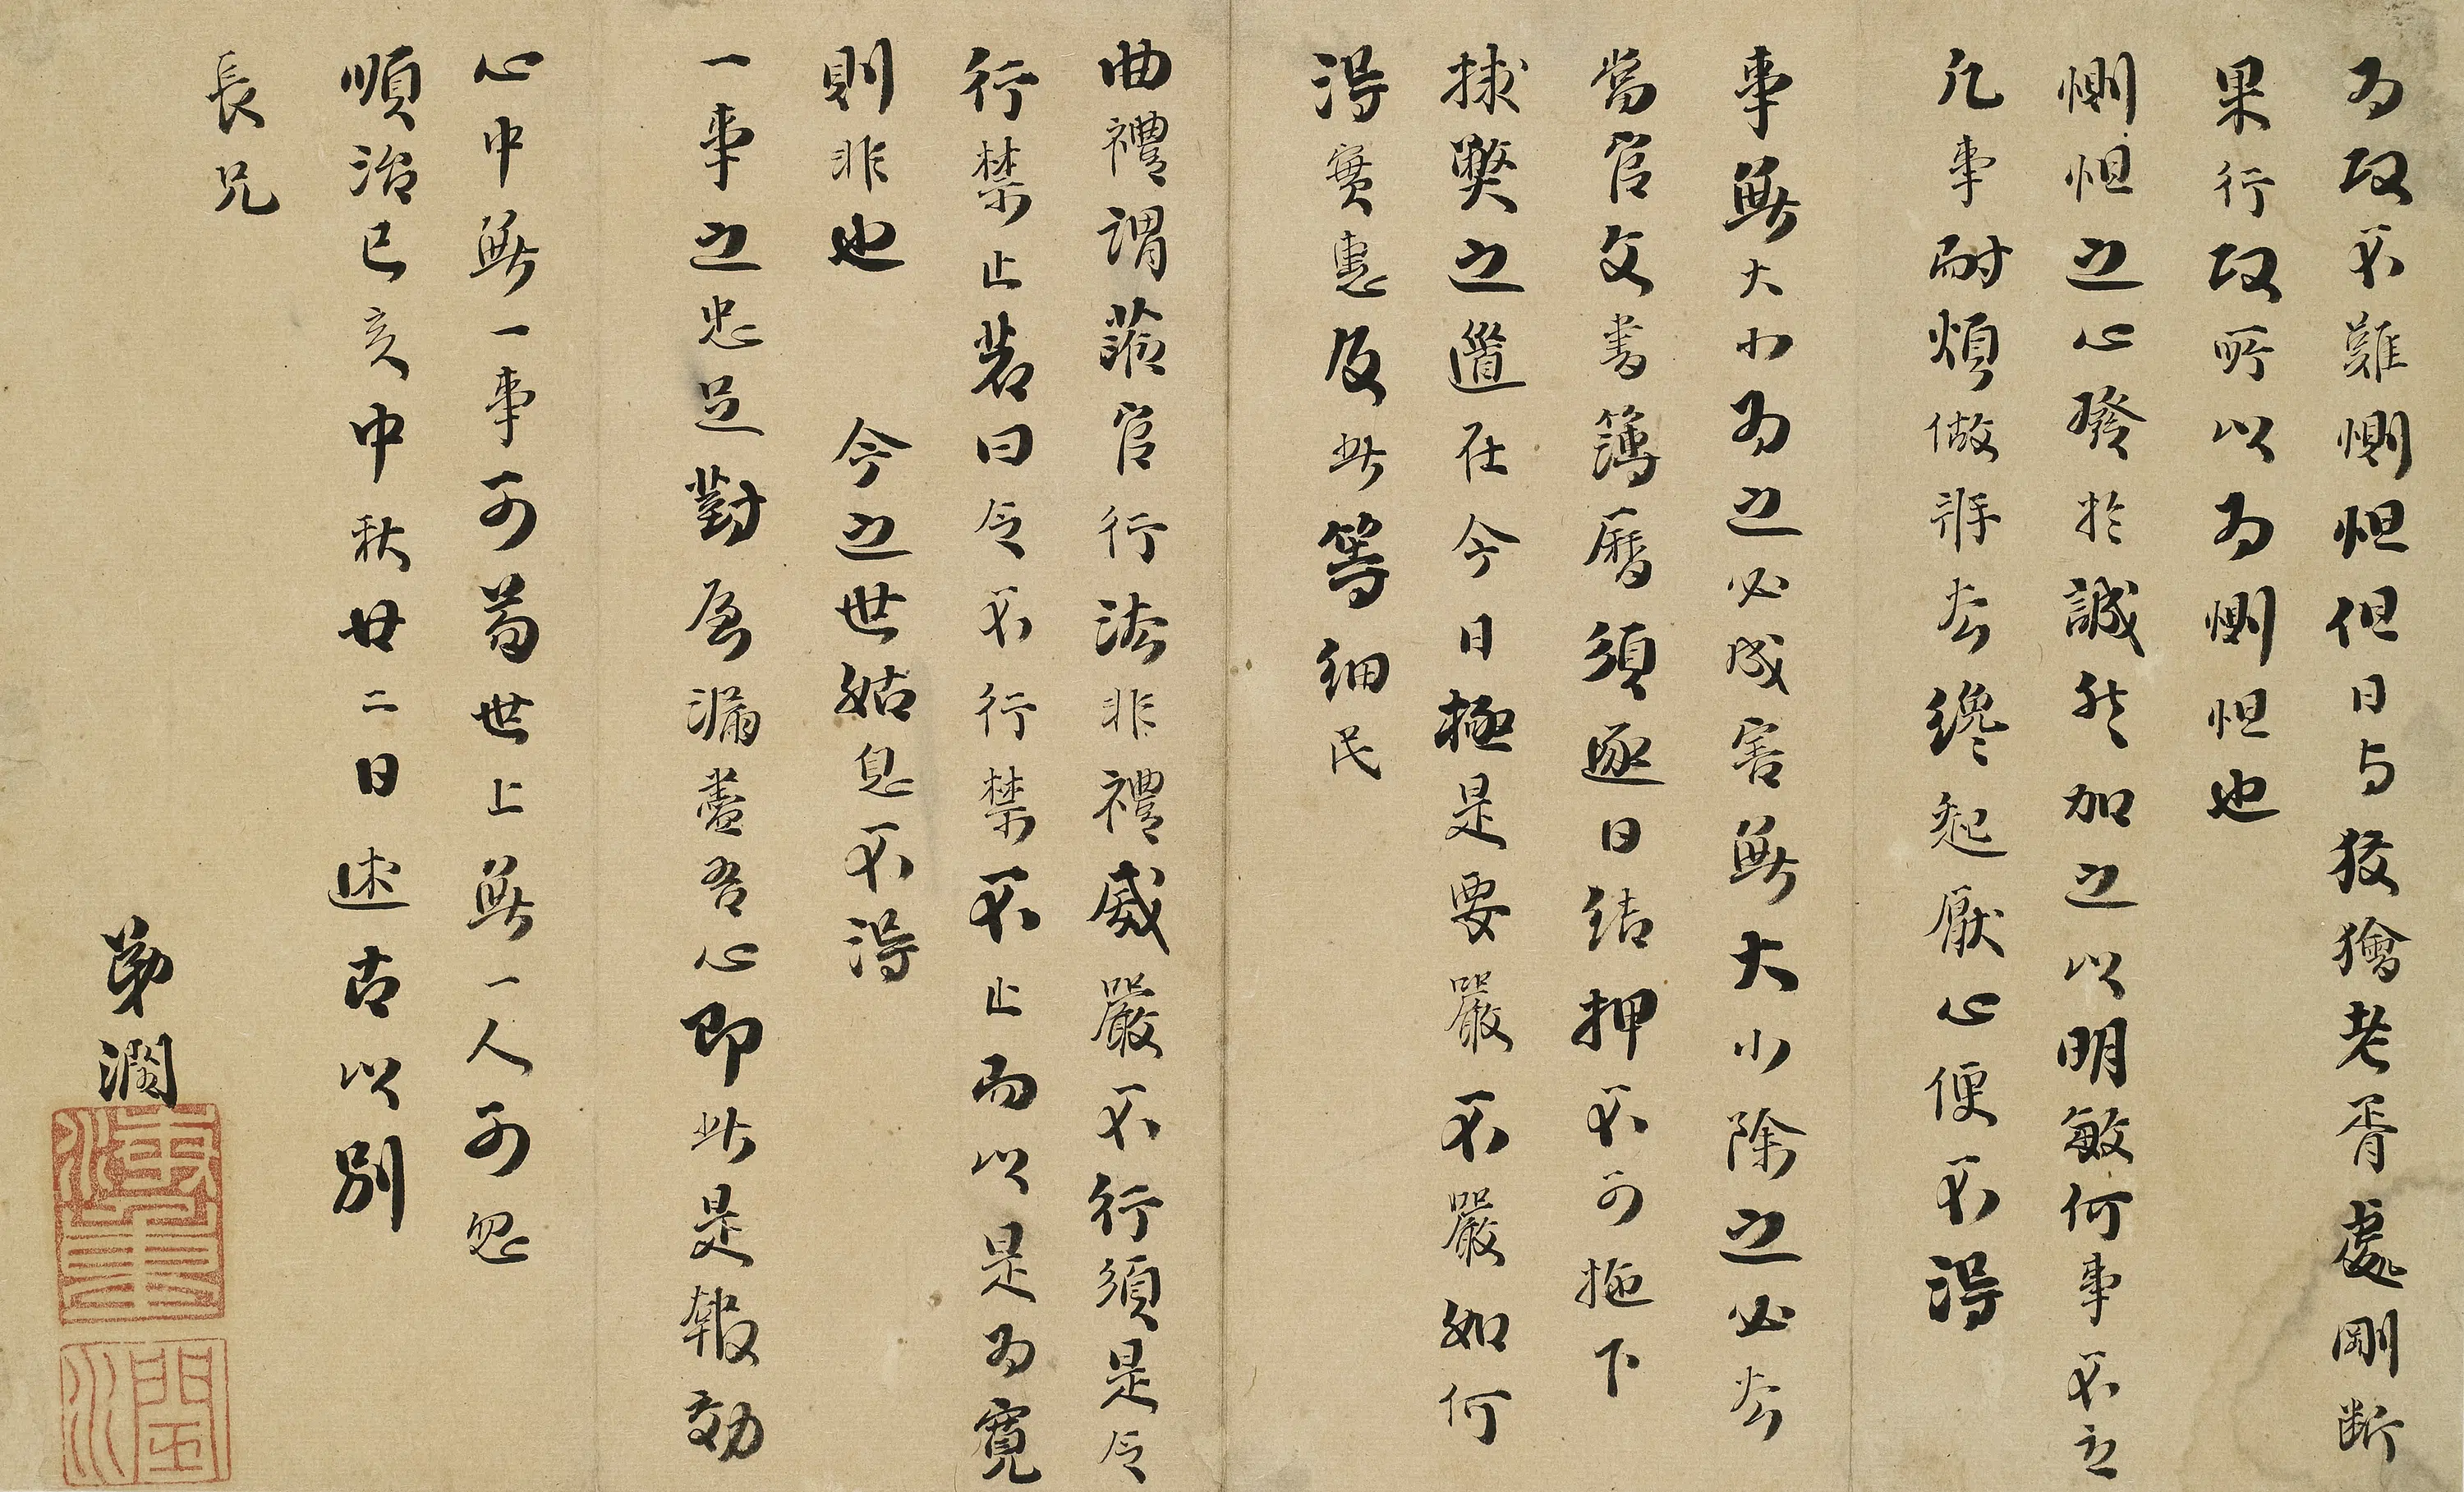 為政不難惻怛但日与狡獪老胥處剛断
果行政所以為惻怛也
惻怛之心發於誠然加之以明敏何事不立
凡事耐煩做將去纔起厭心便不得
事無大小為之必成害無大小除之必去
當官文書簿曆須逐日結押不可拖下
捄獘之道在今日極是要嚴不嚴如何
得實惠及此等細民
曲禮謂蒞官行法非禮威嚴不行須是令
行禁止若曰令不行禁不止而以是為寬
則非也 今之世姑息不得
一事之忠足對屋漏盡吾心即此是報効
心中無一事可苟世上無一人可忽
順治己亥中秋廿二日述古以別
長兄
弟潤